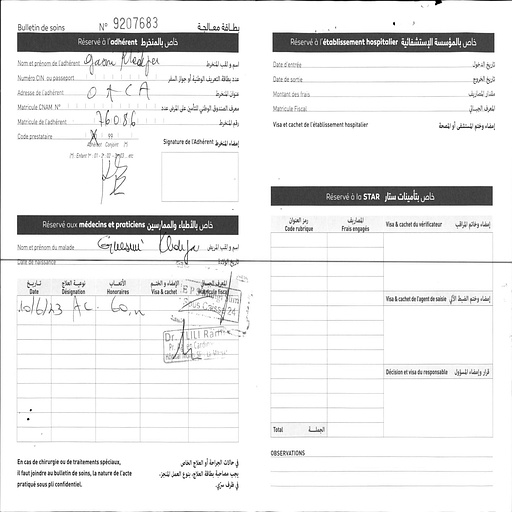 Bulletin de soins N° 9207683 بطاقة معالجة
Réservé à l'adhérent خاص بالمنخرط
Nom et prénom de l'adhérent اسم و لقب المنخرط
Numéro CIN ou passeport عدد بطاقة التعريف الوطنية أو جواز السفر
Adresse de l'adhérent O A C A عنوان المنخرط
Matricule CNAM N° معرف الصندوق الوطني للتأمين على المرض عدد
Matricule de l'adhérent 76086 رقم المنخرط
Code prestataire X 99
Adhérent Conjoint
Signature de l'Adhérent إمضاء المنخرط
Réservé aux médecins et praticiens خاص بالأطباء والممارسين
Nom et prénom du malade اسم و لقب المريض
Date de naissance تاريخ الولادة
تاريخ نوعية العلاج الأتعاب الإمضاء و الختم المعرف الجبائي
Date Désignation Honoraires Visa & cachet Matricule fiscal
10/6/23 AC
En cas de chirurgie ou de traitements spéciaux,
il faut joindre au bulletin de soins, la nature de l'acte
pratiqué sous pli confidentiel.
في حالات الجراحة أو العلاج الخاص
يجب مصاحبة بطاقة العلاج، بنوع العمل المنجز،
في ظرف سري.
Réservé à l'établissement hospitalier خاص بالمؤسسة الإستشفائية
Date d'entrée تاريخ الدخول
Date de sortie تاريخ الخروج
Montant des frais مقدار المصاريف
Matricule Fiscal المعرف الجبائي
Visa et cachet de l'établissement hospitalier إمضاء وختم المستشفى أو المصحة
Réservé à la STAR خاص بتأمينات ستار
رمز العنوان المصاريف
Code rubrique Frais engagés
Visa & cachet du vérificateur إمضاء وخاتم المراقب
Visa & cachet de l'agent de saisie إمضاء وختم الضبط الآلي
Décision et visa du responsable قرار وإمضاء المسؤول
Total الجملة
OBSERVATIONS